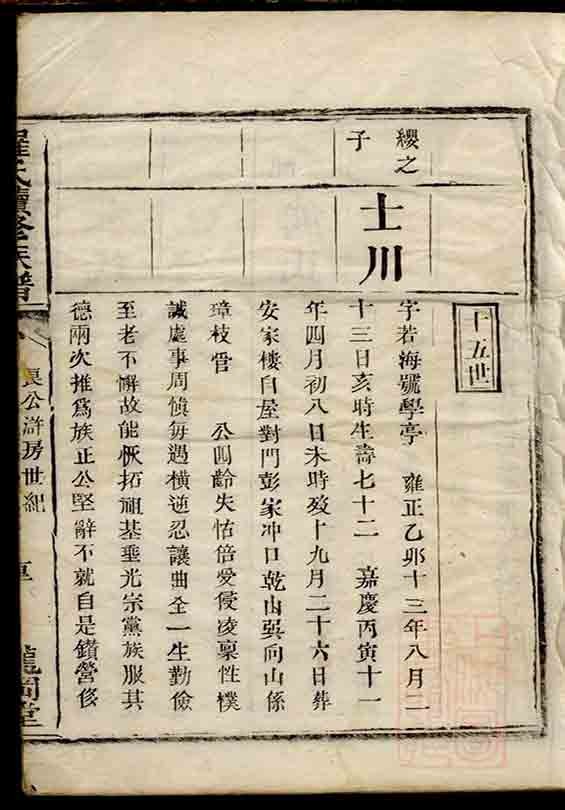 十五世
纓之
子
士川
字若海號學亭　雍正乙卯十三年八月二
十三日亥時生壽七十二　嘉慶丙寅十一
年四月初八日未時歿十九月二十六日葬
安家樓自屋對門彭家冲口乾山巽向山係
璋枝管　公四齡失怙倍受侵凌稟性樸
誠處事周慎每遇橫逆忍讓曲全一生勤儉
至老不懈故能恢拓祖基垂光宗黨族服其
德兩次推爲族正公堅辭不就自是鑽營侈
羅氏續修族譜
公滸房世紀